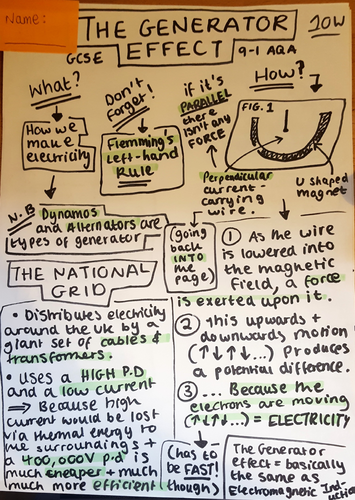 Name:
THE GENERATOR
EFFECT
10W
GCSE
9-1 AQA
What?
How we
make
electricity
Don't
forget!
Flemming's
left-hand
RULE
if it's
PARALLEL
there
isn't any
FORCE
How?
FIG. 1
Perpendicular
current-
carrying
wire.
U shaped
magnet
N.B Dynamos
and Alternators are
types of generator
(going
back
INTO
the
page)
THE NATIONAL
GRID
• Distributes electricity
around the UK by a
giant set of cables +
transformers.
• Uses a HIGH P.D
and a low current
⇒ Because high
current would be lost
via thermal energy to
the surroundings +
a 400,000V P.d is
much cheaper + much
much more efficient
① As the wire
is lowered into
the magnetic
field, a force
is exerted upon it.
② this upwards +
downwards motion
(↑↓↑↓...) Produces
a potential difference.
③ ... Because the
electrons are moving
(↑↓↑↓...) = ELECTRICITY
(has to
be FAST!
though)
The Generator
effect = basically
the same as
Electromagnetic Induction